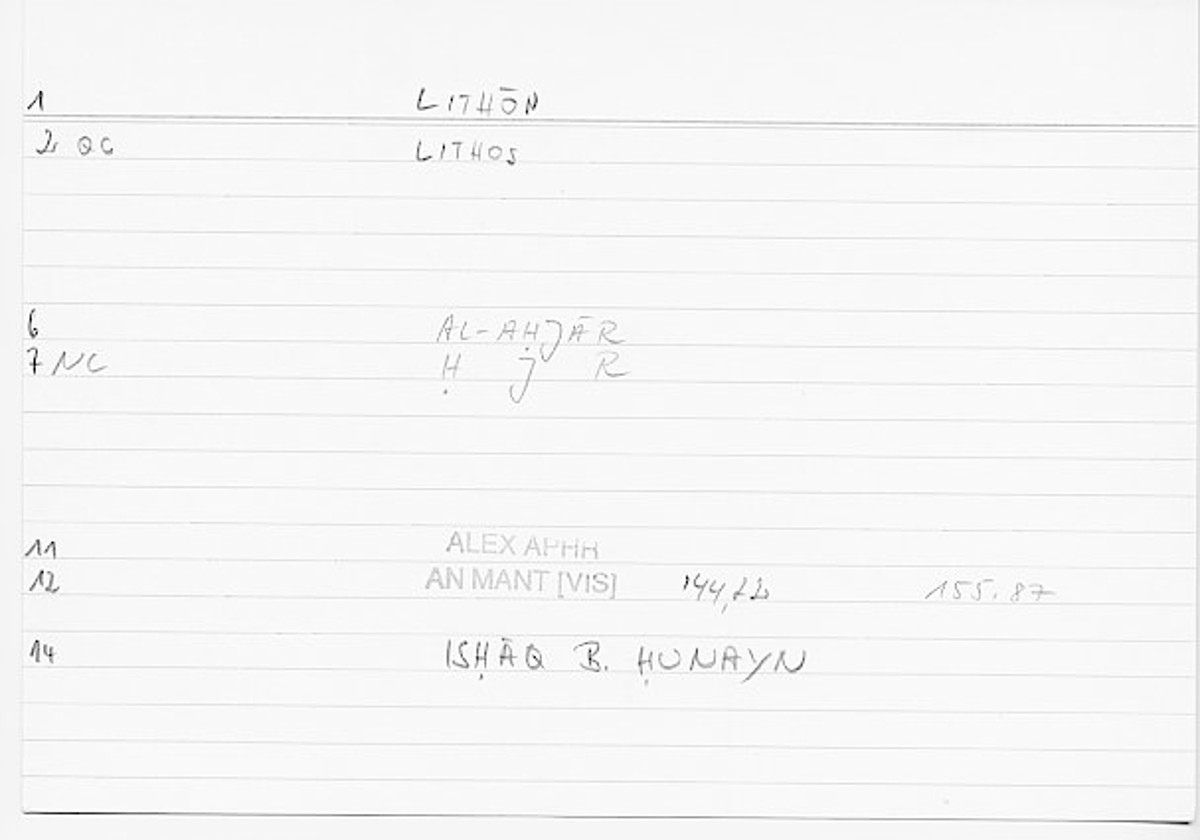 1 LITHŌN
2 QG LITHOS
6 AL-AḤJĀR
7 NC Ḥ J R
11 ALEX APHR
12 AN MANT [VIS] 144,22 155.87
14 ISḤĀQ B. ḤUNAYN